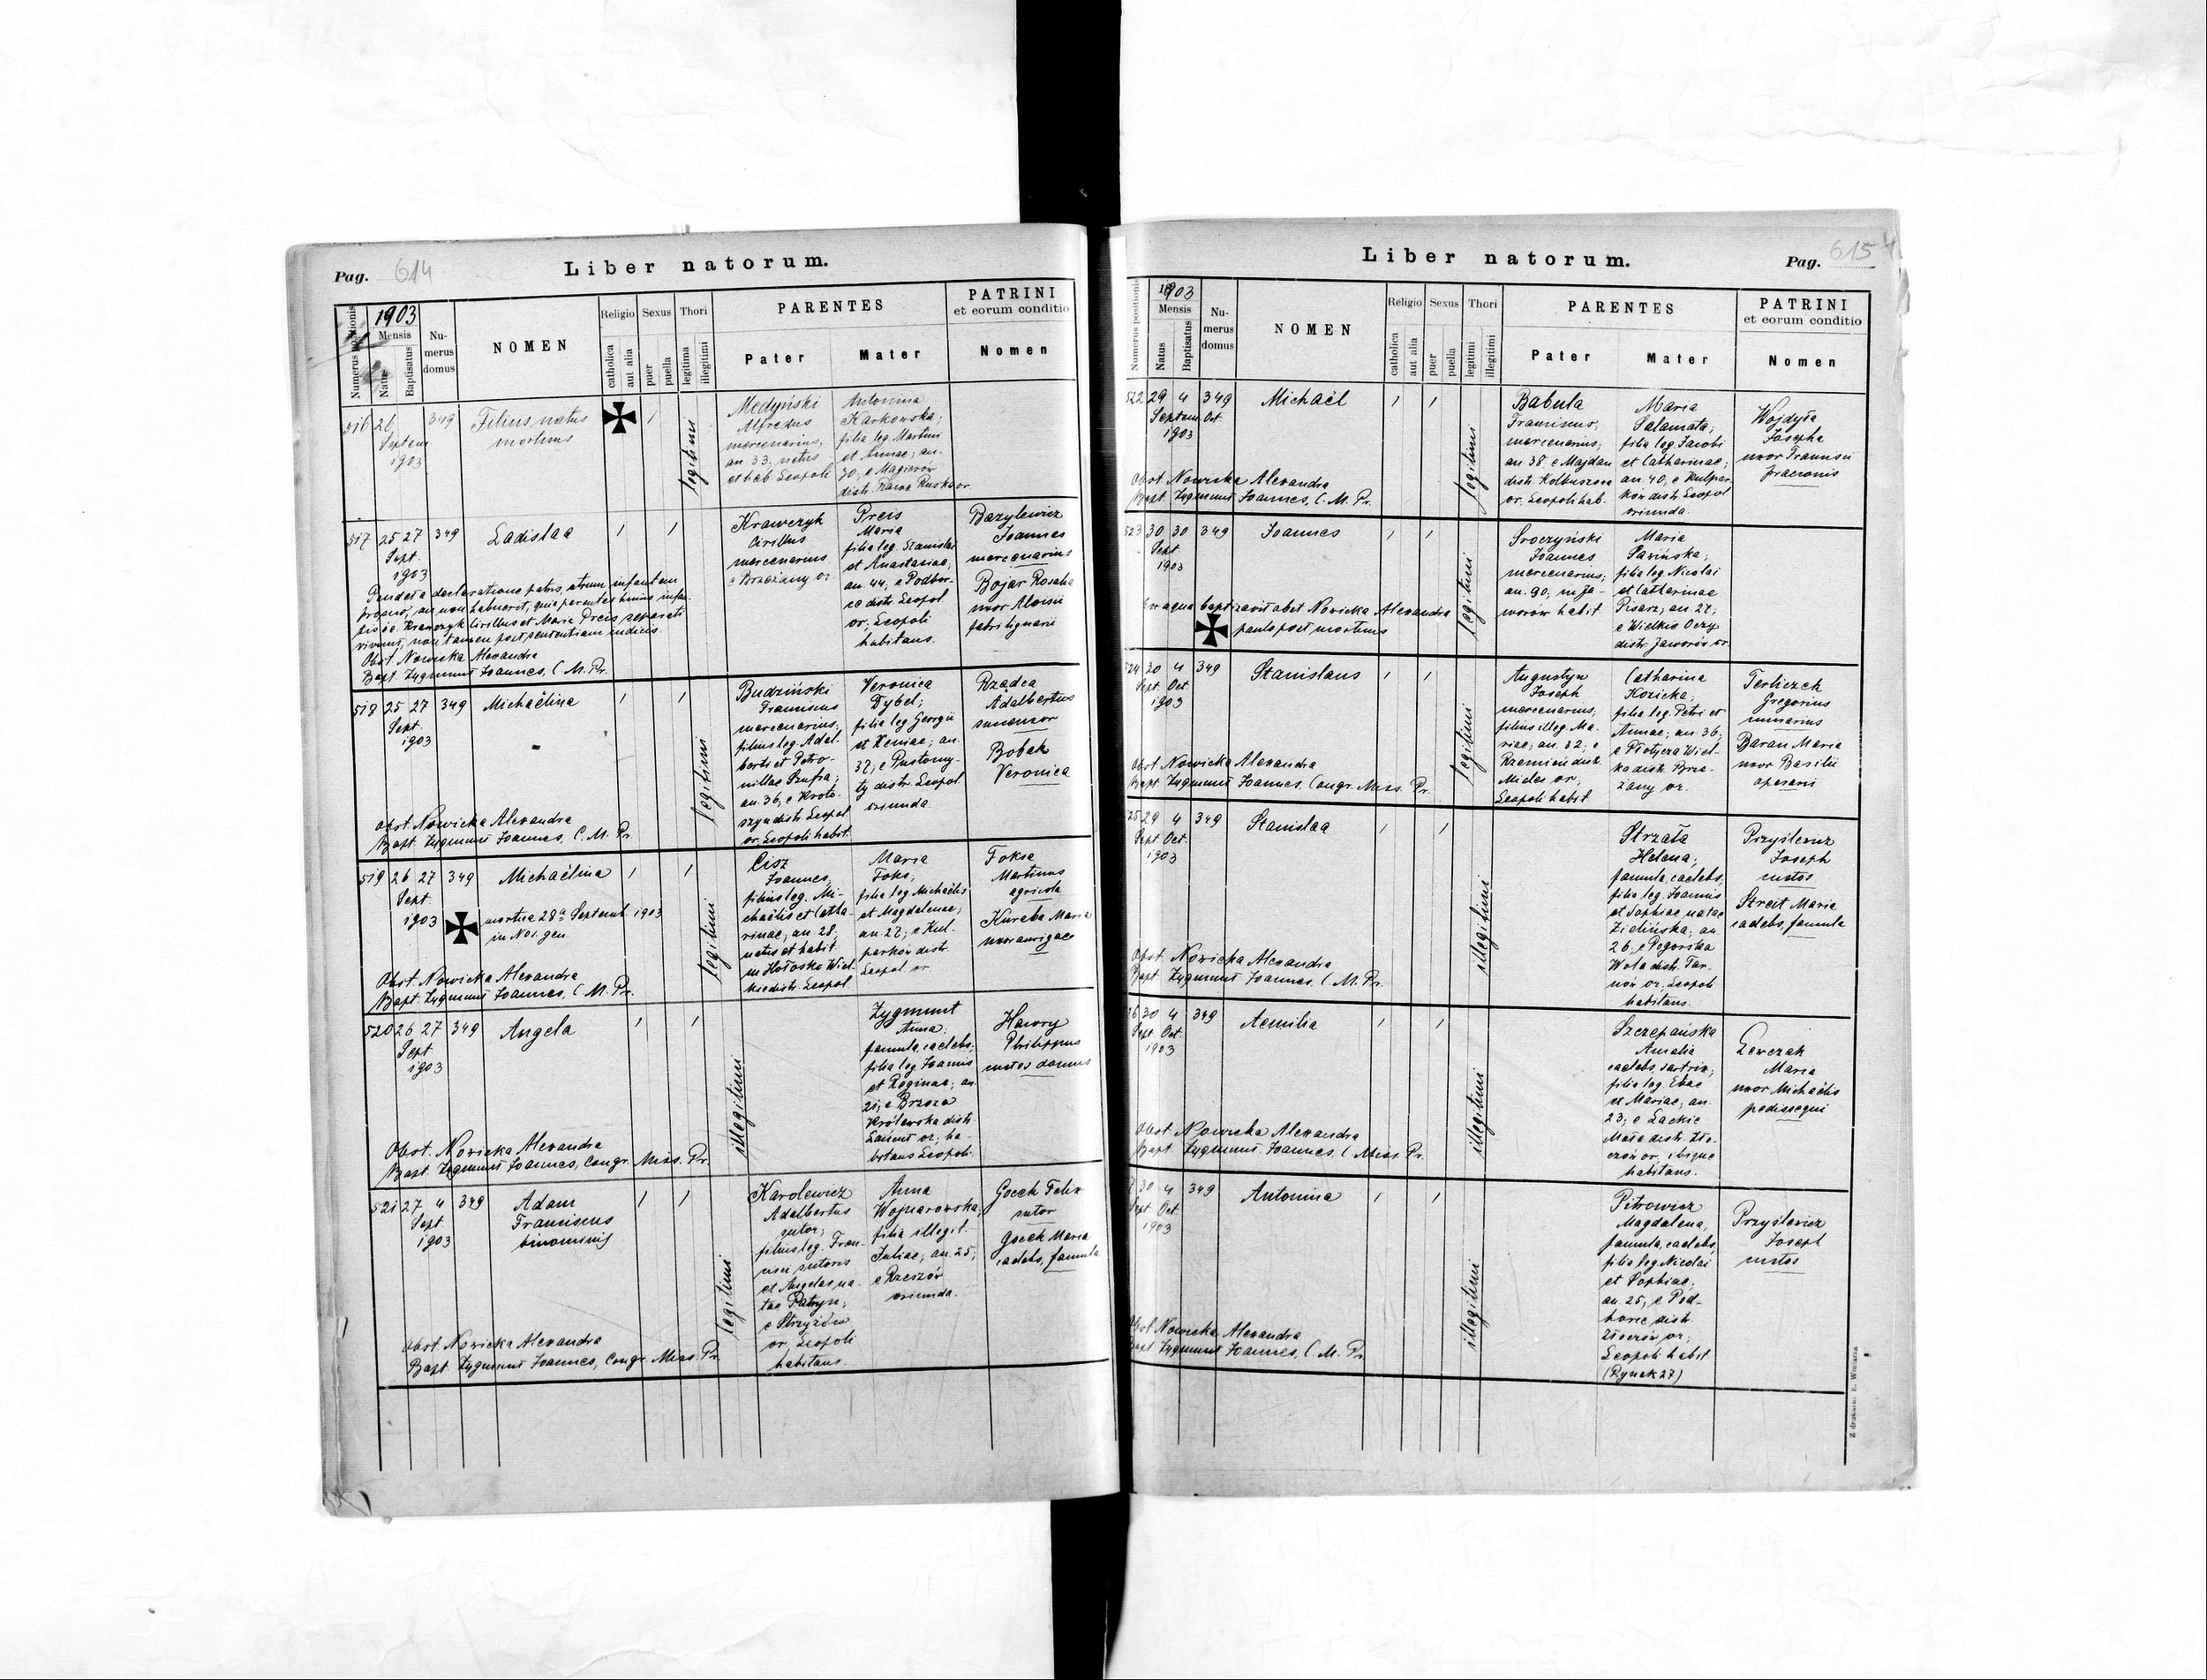 Pag. 614
Liber natorum.
Numerus positionis
1903
Mensis
Natus
Baptisatus
Numerus domus
NOMEN
Religio
catholica
aut alia
Sexus
puer
puella
Thori
legitima
illegitimi
PARENTES
Pater
Mater
PATRINI
et eorum conditio
Nomen
516 26 349 Filius natus
Septem
1903
mortuus
legitimi
Medyński
Alfredus
mercenarius,
an 33; natus
et hab. Leopoli
Antonina
Karkowska;
filia leg. Martini
et Annae; an.
30; e Magierów
distr. Rawa Ruska or.
517 25 27 349 Ladislaa
Sept.
1903
Krawczyk
Cirillus
mercenarius
e Brzeżany or.
Preis
Maria
filia leg. Stanislai
et Anastasiae,
an. 44, e Podbor-
ce distr. Leopol
or, Leopoli
habitans.
Bazylewicz
Joannes
mercenarius
Bojar Rosalia
uxor Aloisii
fabri lignarii
declaratione patris, utrum infantem
an non habuerit, quia parentes huius infan-
Krawczyk Cirillus et Maria Preis separati
vivunt, non tamen post sententiam iudicis.
Obst. Nowicka Alexandra
Bapt. Zygmunt Joannes, C. M. Pr.
518 25 27 349 Michaëlina
Sept.
1903
legitimi
Budziński
Franciscus
mercenarius;
filius leg. Adal-
berti et Petro-
nillae Szufra;
an. 36, e Kroto-
szyn distr. Leopol
or. Leopoli habit.
Veronica
Dybel;
filia leg Georgii
et Xeniae; an.
37; e Pustomy-
ty distr. Leopol
oriunda.
Rządca
Adalbertus
Bobak
Veronica
Obst. Nowicka Alexandra
Bapt. Zygmunt Joannes, C. M. Pr.
519 26 27 349 Michaëlina
Sept.
1903
mortua 28a Septemb. 1903
in Nos. gen
legitimi
Cisz
Joannes,
filius leg. Mi-
chaëlis et Catha-
rinae, an. 28;
natus et habit.
in Hołosko Wiel-
kie distr. Leopol
Maria
Foks;
filia leg Michaëlis
et Magdalenae;
an. 27; e Kul-
parków distr.
Leopol or
Foksa
Martinus
agricola
Kuraba Maria
uxor aurigae
Obst. Nowicka Alexandra
Bapt. Zygmunt Joannes, C. M. Pr.
520 26 27 349 Angela
Sept
1903
illegitimi
Zygmunt
Anna;
famula, caelebs;
filia leg. Joannis
et Reginae; an.
21; e Brzoza
Królewska distr.
Łańcut or; ha-
bitans Leopoli.
Hawry
Philippus
custos domus
Obst. Nowicka Alexandra
Bapt. Zygmunt Joannes, Congr. Miss. Pr.
521 27 4 349 Adam
Sept
1903
Franciscus
binominis
legitimi
Karolewicz
Adalbertus
sutor;
filius leg. Fran-
cisci sutoris
et Angelae na-
tae Patryn;
e Strzyżów
or. Leopoli
habitans.
Anna
Wojnarowska;
filia illegit.
Juliae; an. 25;
e Rzeszów
oriunda.
Gocek Felix
sutor
Gocek Maria
caelebs, famula
Obst. Nowicka Alexandra
Bapt. Zygmunt Joannes, Congr. Miss. Pr.
Liber natorum.
Pag. 615
Numerus positionis
1903
Mensis
Natus
Baptisatus
Numerus domus
NOMEN
Religio
catholica
aut alia
Sexus
puer
puella
Thori
legitimi
illegitimi
PARENTES
Pater
Mater
PATRINI
et eorum conditio
Nomen
522 29 4 349 Michaël
Septem Oct.
1903
legitimi
Babula
Franciscus,
mercenarius;
an. 38. e Majdan
distr. Kolbuszowa
or. Leopoli hab.
Maria
Salamata;
filia leg. Jacobi
et Catharinae;
an. 40, e Kulpar-
ków distr. Leopol
oriunda.
Wojdyła
Josepha
uxor Francisci
Obst. Nowicka Alexandra
Bapt. Zygmunt Joannes, C. M. Pr.
523 30 30 349 Joannes
Sept.
1903
legitimi
Sroczyński
Joannes
mercenarius;
an. 90, in Ja-
worów habit.
Maria
filia leg. Nicolai
et Catharinae
Pisarz; an. 27;
e Wielkie Oczy
distr. Jaworów or.
Ex aqua baptizavit obst. Nowicka Alexandra
paulo post mortuus
524 20 4 349 Stanislaus
Sept Oct
1903
legitimi
Augustyn
Joseph
mercenarius,
filius illeg. Ma-
riae; an. 32; e
distr.
Mielec or,
Leopoli habit.
Catharina
Kozicka;
filia leg. Petri et
Annae; an. 36;
e Płotycza Wiel-
ka distr. Brze-
żany or.
Terliczek
Gregorius
Baran Maria
uxor Basilii
operarii
Obst. Nowicka Alexandra
Bapt. Zygmunt Joannes, Congr. Miss. Pr.
25 29 4 349 Stanislaa
Sept Oct.
1903
illegitimi
Strzała
Helena;
famula, caelebs,
filia leg. Joannis
et Sophiae natae
Zielińska; an.
26, e Pogorska
Wola distr. Tar-
nów or, Leopoli
habitans.
Przyślewicz
Joseph
custos
Streit Maria
caelebs, famula
Obst. Nowicka Alexandra
Bapt. Zygmunt Joannes, C. M. Pr.
26 30 4 349 Aemilia
Sept Oct.
1903
illegitimi
Szczepańska
Amalia
caelebs, sartrix;
filia leg. Eliae
et Mariae, an.
23; e Lackie
Małe distr. Zło-
czów or, ibique
habitans.
Lewczak
Maria
uxor Michaëlis
pedissequi
Obst. Nowicka Alexandra
Bapt. Zygmunt Joannes, C. Miss. Pr.
7 30 4 349 Antonina
Sept. Oct
1903
illegitimi
Pitrowicz
Magdalena,
famula, caelebs,
filia leg. Nicolai
et Sophiae;
an. 25; e Pod-
horce distr.
Złoczów or;
Leopoli habit.
(Rynek 27)
Przyślewicz
Joseph
custos
Obst. Nowicka Alexandra
Bapt. Zygmunt Joannes, C. M. Pr.
Z drukarni E. Winiarza